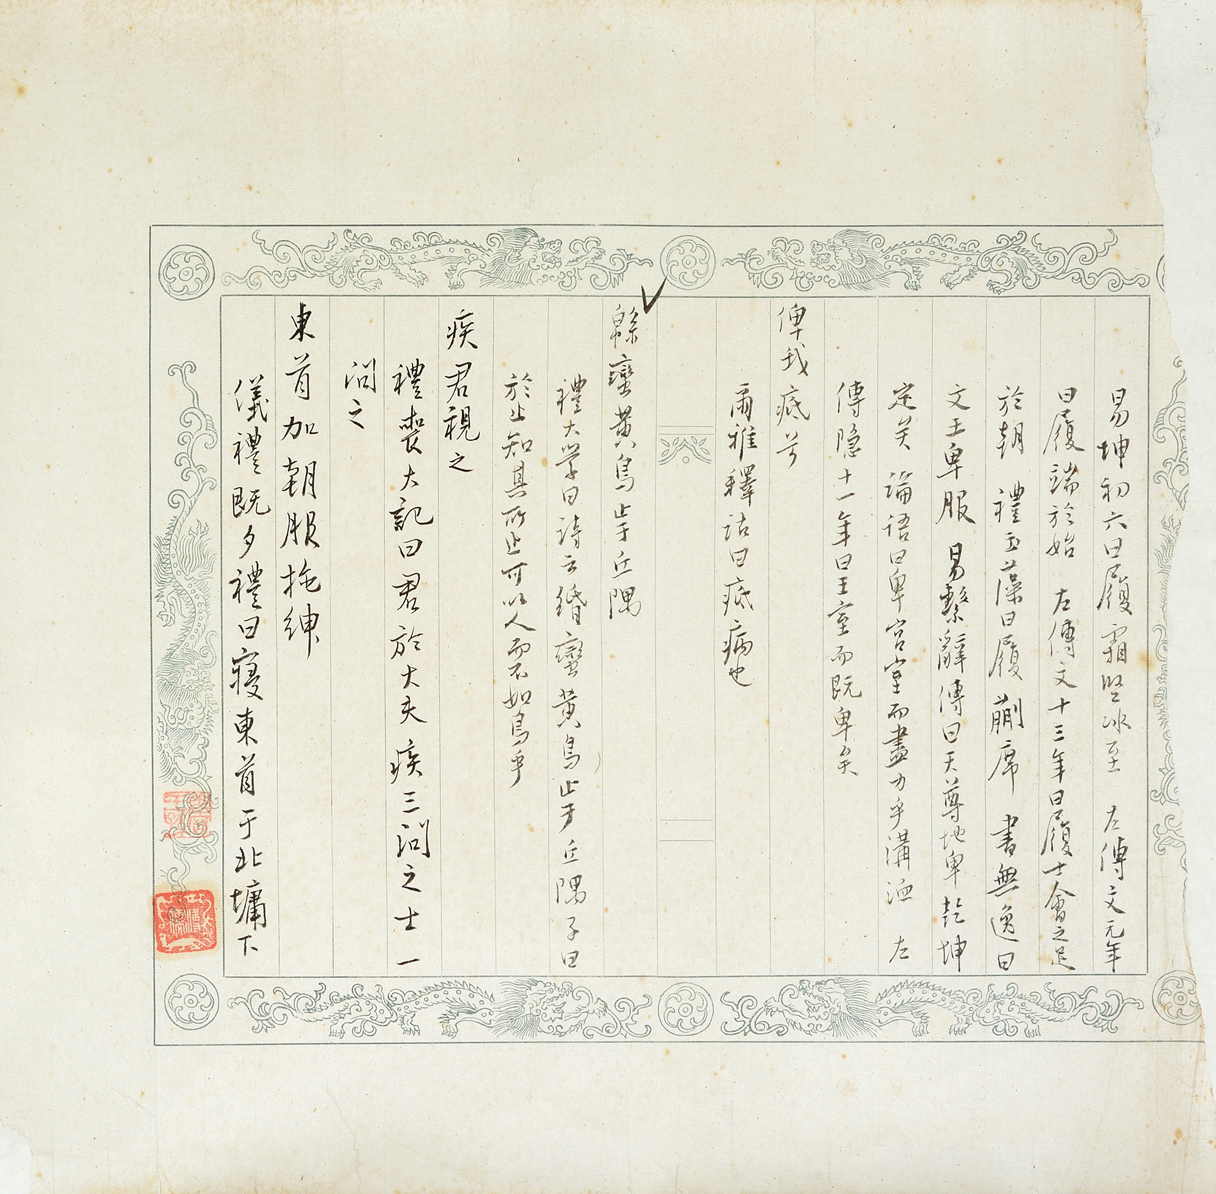 易坤初六曰履霜堅冰至　左傳文元年
曰履端於始　左傳文十三年曰履士會之足
於朝　禮玉藻曰履蒯席　書無逸曰
文王卑服　易繫辭傳曰天尊地卑乾坤
定矣　論語曰卑宮室而盡力乎溝洫　左
傳隱十一年曰王室而既卑矣
俾我疷兮
爾雅釋詁曰疷病也
緜蠻黃鳥止于丘隅
禮大學曰詩云緡蠻黃鳥止于丘隅子曰
於止知其所止可以人而不如鳥乎
疾君視之
禮喪大記曰君於大夫疾三問之士一
問之
東首加朝服拖紳
儀禮既夕禮曰寢東首于北墉下